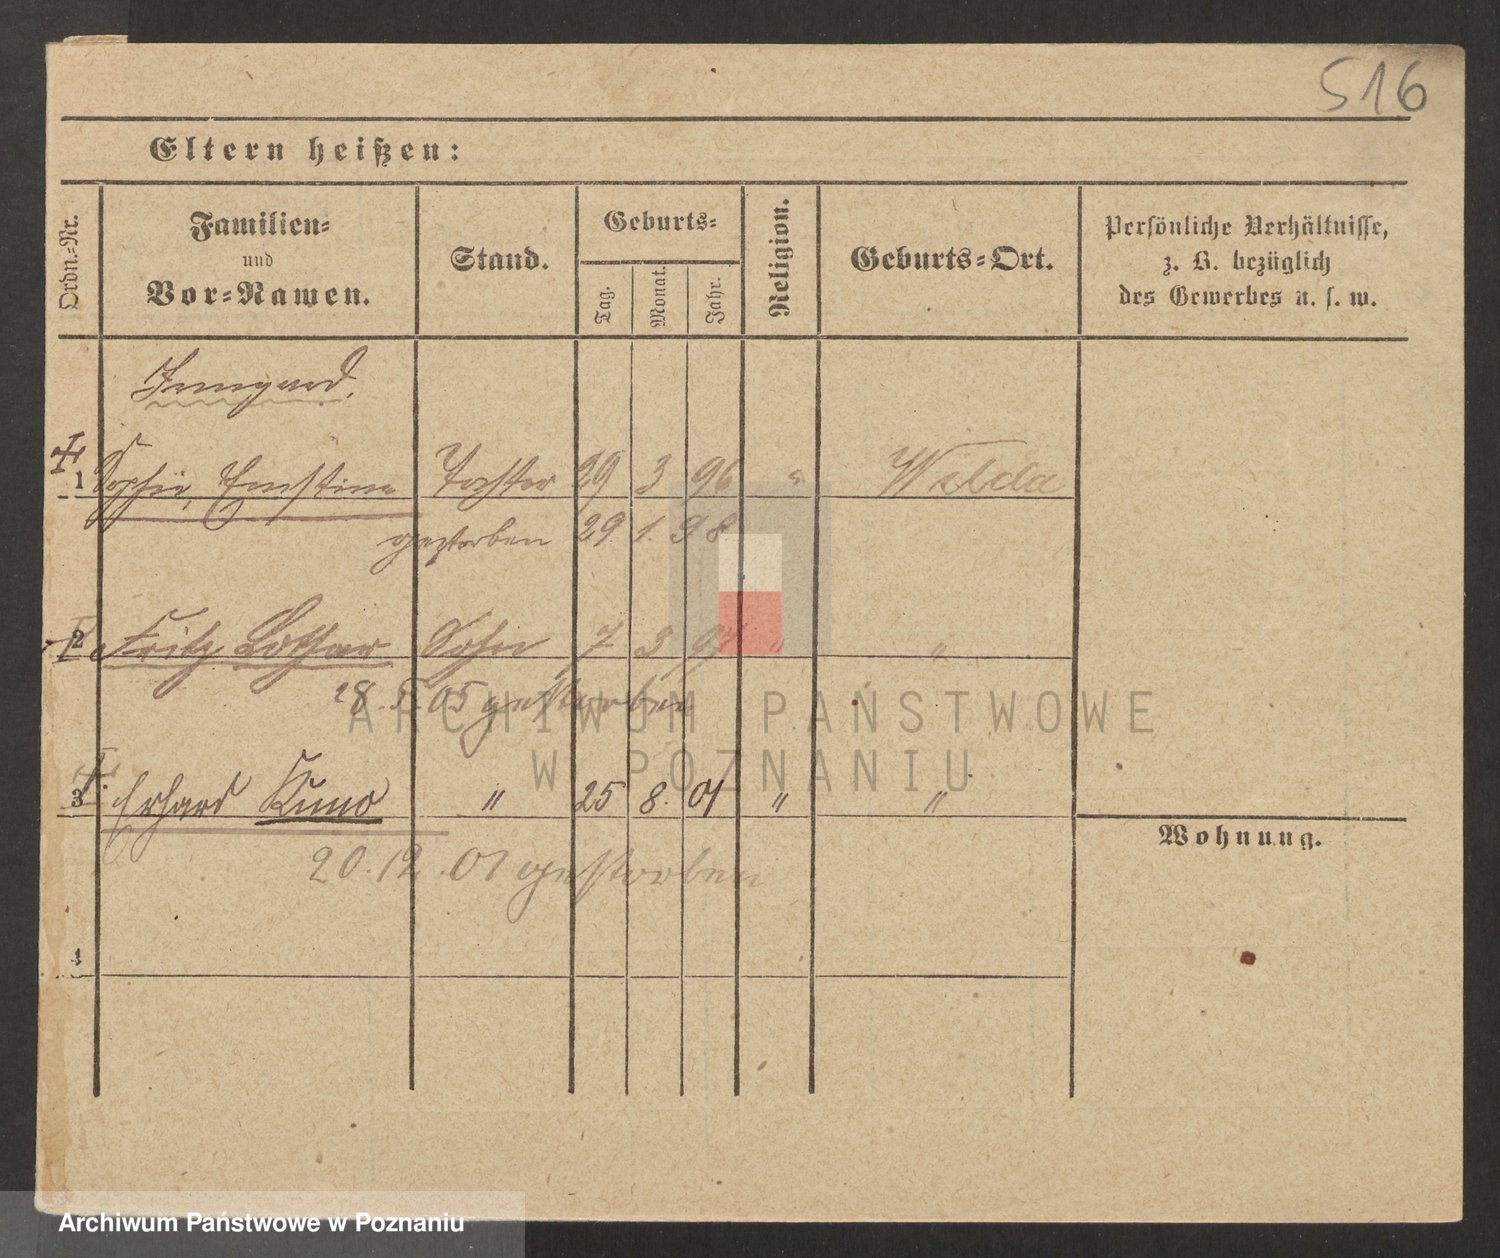 516
Eltern heißen:
Ordn.-Nr.
Familien-
und
Vor-Namen.
Stand.
Geburts-
Tag.
Monat.
Jahr.
Religion.
Geburts-Ort.
Persönliche Verhältnisse,
z. B. bezüglich
des Gewerbes u. s. w.
Irmgard.
1 Sophie, Ernstine Tochter 29 3 96 " Wilda
gestorben 29. 1. 98
2 Fritz Lothar Sohn 7 3 97 " "
28. 5. 05 gestorben
3 Erhard Kuno " 25 8. 01 " "
Wohnung.
20. 12. 01 gestorben
4
ARCHIWUM PAŃSTWOWE
W POZNANIU
Archiwum Państwowe w Poznaniu